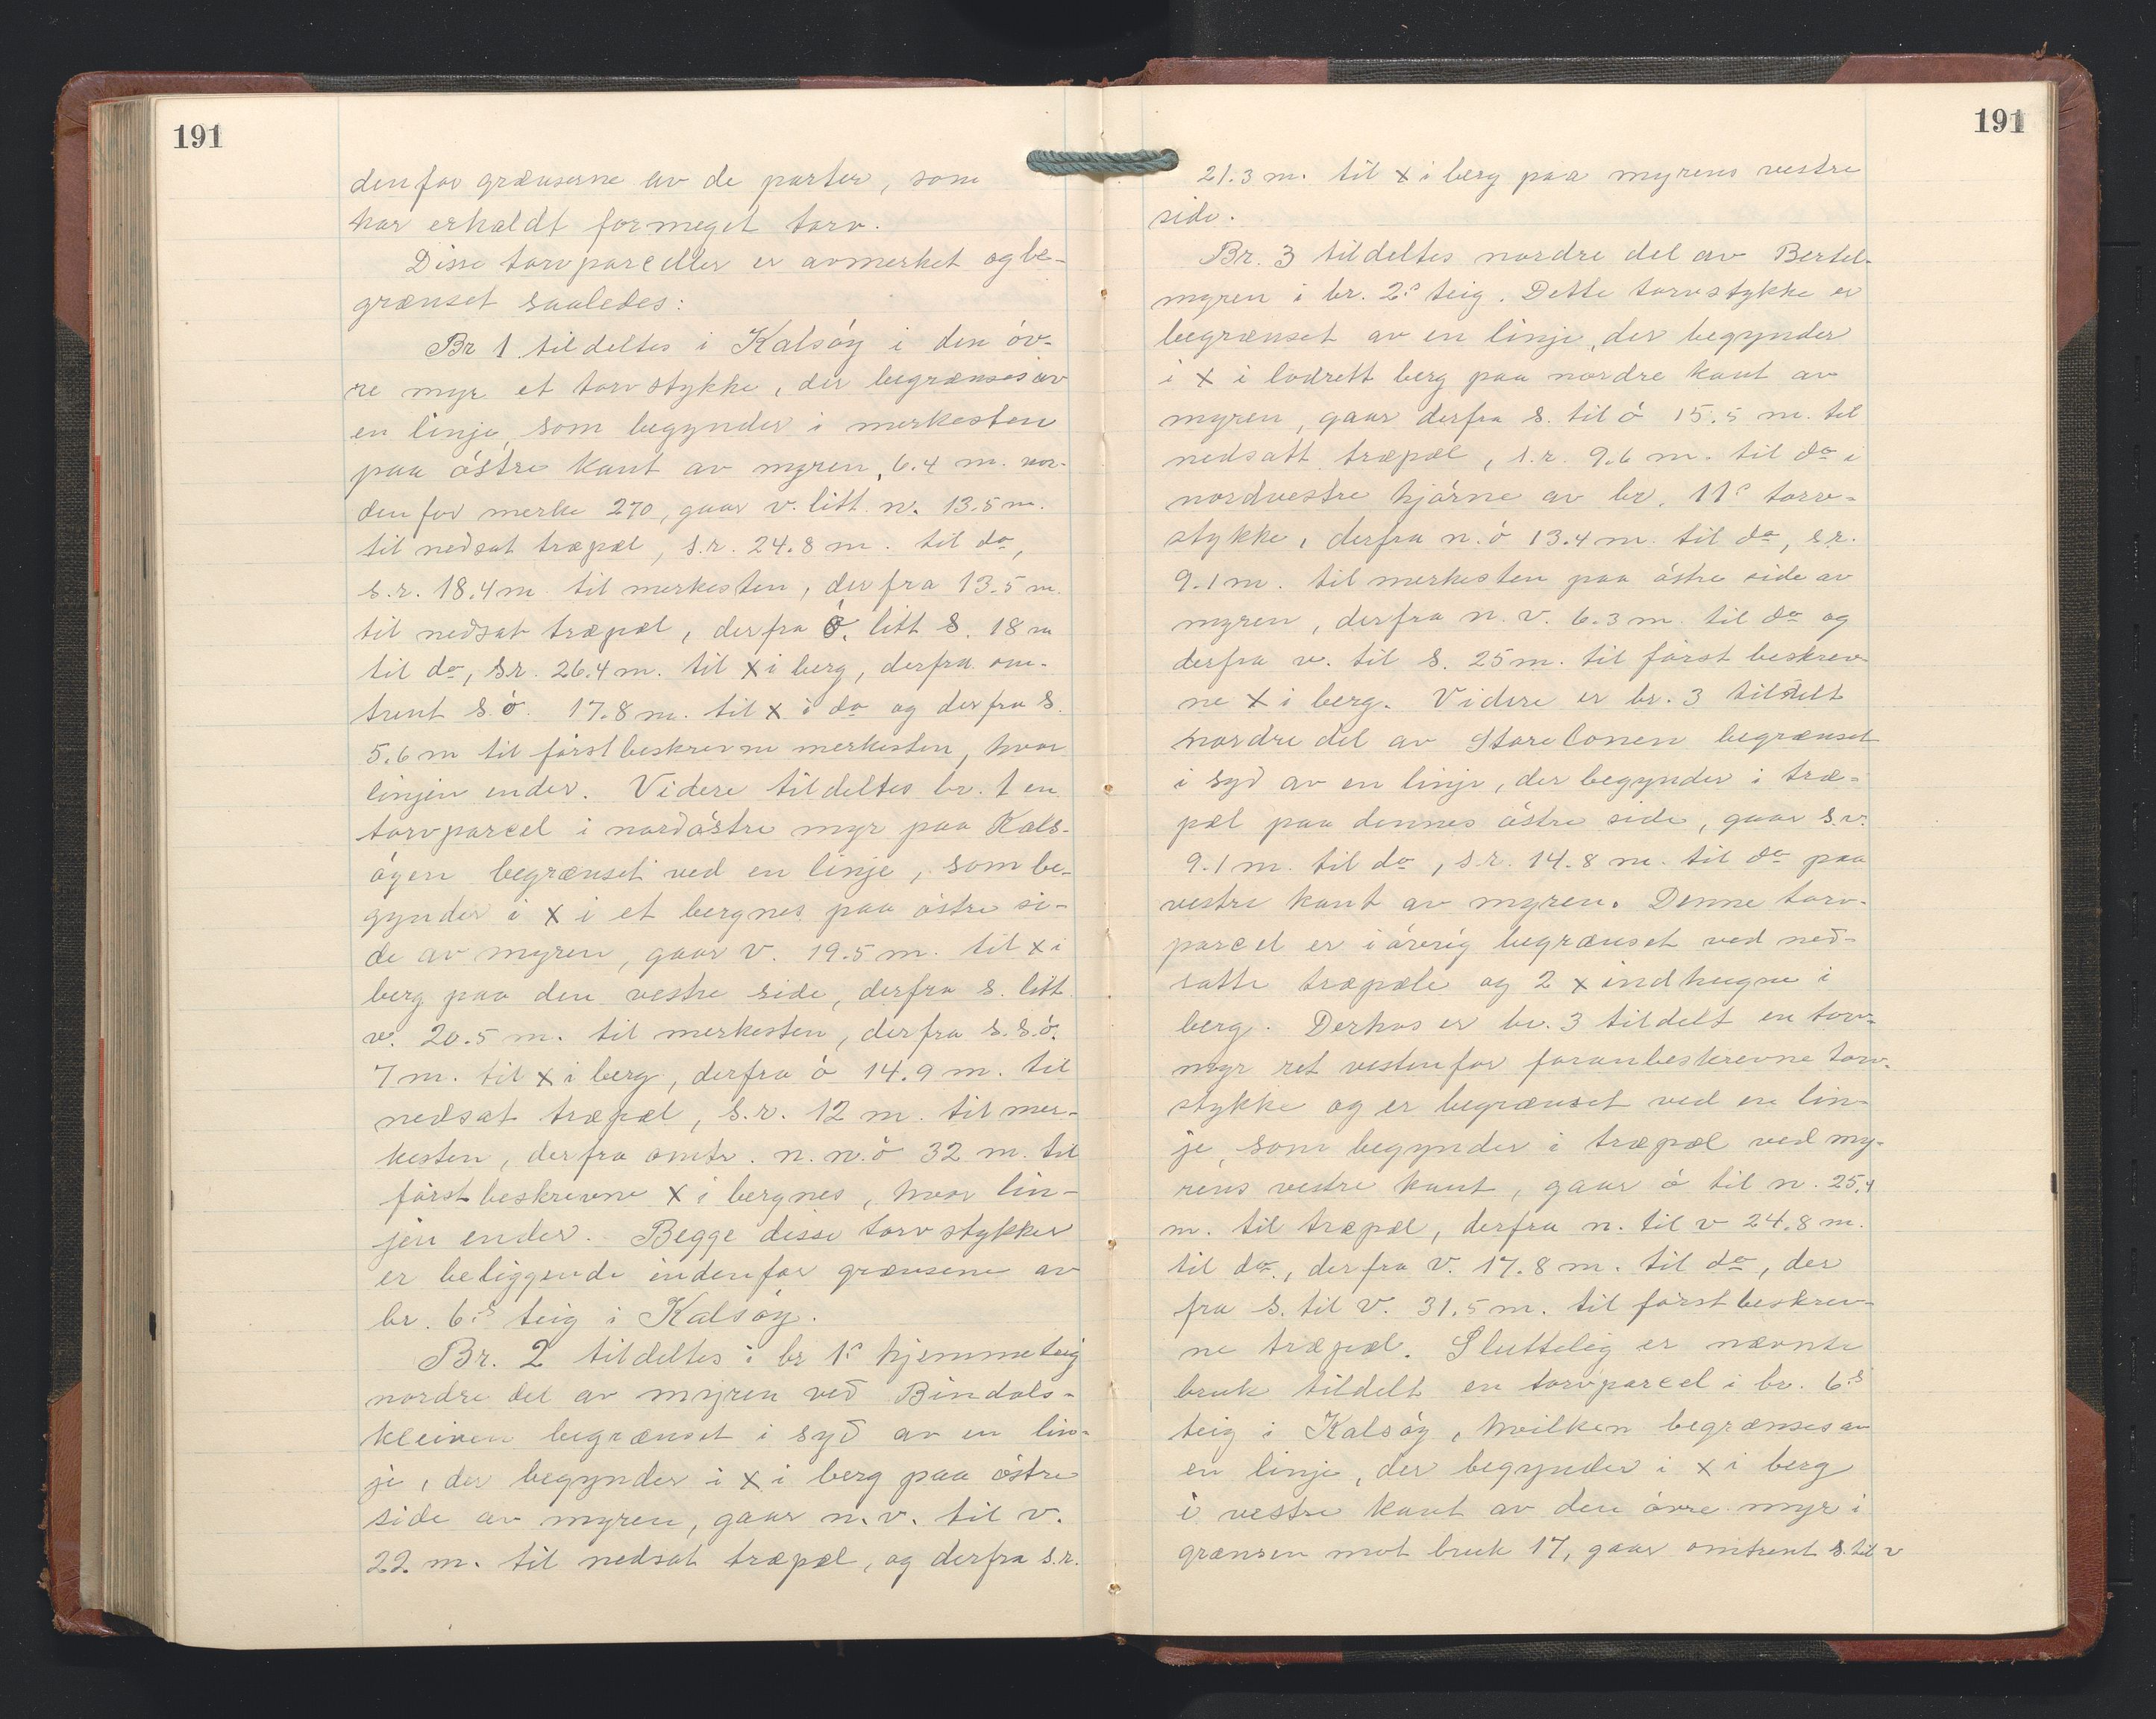 191
denfor grænserne av de parter, som
har erholdt formeget torv.
Disse torvparceller er avmerket og be-
grænset saaledes:
Br 1 tildeltes i Kalsóy i den óv-
re myr et torvstykke, der begrænses av
en linje, som begynder i merkesten
paa óstre kant av myren, 6.4 m. nor-
denfor merke 270, gaar v. litt n. 13.5 m.
til nedsat træpæl, s.r. 24.8 m. til do,
s.r. 18.4 m til merkesten, derfra 13.5 m.
til nedsat træpæl, derfra ó. litt s. 18 m
til do, s.r. 26.4 m. til x i berg, derfra om-
trent s.ó. 17.8 m. til x i do og derfra s.
5.6 m til fórstbeskrevne merkesten, hvor
linjen ender. Videre tildeltes br. 1 en
torvparcel i nordóstre myr paa Kals-
óyen begrænset ved en linje, som be-
gynder i x i et bergnes paa óstre si-
de av myren, gaar v. 19.5 m. til x i
berg paa den vestre side, derfra s. litt
v. 20.5 m. til merkesten, derfra s.s.ó.
7 m. til x i berg, derfra ó 14.9 m. til
nedsat træpæl, s.r. 12 m. til mer-
kesten, derfra omtr. n.n.ó 32 m. til
fórstbeskrevne x i bergnes, hvor lin-
jen ender. Begge disse torvstykker
er beliggende indenfor grænsene av
br. 6:s teig i Kalsóy.
Br. 2 tildeltes i br 1:s hjemmeteig
nordre del av myren ved Bindals-
kleiven begrænset i syd av en lin-
je, der begynder i x i berg paa óstre
side av myren, gaar n.v. til v.
22. m. til nedsat træpæl, og derfra s.r.
191
21.3 m. til x i berg paa myrens vestre
side.
Br. 3 tildeltes nordre del av Bertel-
myren i br. 2:s teig. Dette torvstykke er
begrænset av en linje, der begynder
i x i lodrett berg paa nordre kant av
myren, gaar derfra s. til ó 15.5 m. til
nedsatt træpæl, s.r. 9.6 m. til do i
nordvestre hjórne av br. 11:s torv-
stykke, derfra n.ó 13.4 m. til do, s.r.
9.1 m. til merkesten paa óstre side av
myren, derfra n.v. 6.3 m. til do og
derfra v. til s. 25 m. til fórst beskrev-
ne x i berg. Videre er br. 3 tildelt
nordre del av Storelonen begrænset
i syd av en linje, der begynder i træ-
pæl paa dennes óstre side, gaar s.v.
9.1 m. til do, s.r. 14.8 m. til do paa
vestre kant av myren. Denne torv-
parcel er i óvrig begrænset ved ned-
satte træpæle og 2 x indhugne i
berg. Derhos er br. 3 tildelt en torv-
myr ret vestenfor foranbeskrevne torv-
stykke og er begrænset ved en lin-
je, som begynder i træpæl ved my-
rens vestre kant, gaar ó til n. 25.4
m. til træpæl, derfra n. til v 24.8 m.
til do., derfra v. 17.8 m. til do, der
fra s. til v. 31.5 m. til fórst beskrev-
ne træpæl. Sluttelig er nævnte
bruk tildelt en torvparcel i br. 6:s
teig i Kalsóy, hvilken begrænses av
en linje, der begynder i x i berg
i vestre kant av den óvre myr i
grænsen mot bruk 17, gaar omtrent s. til v